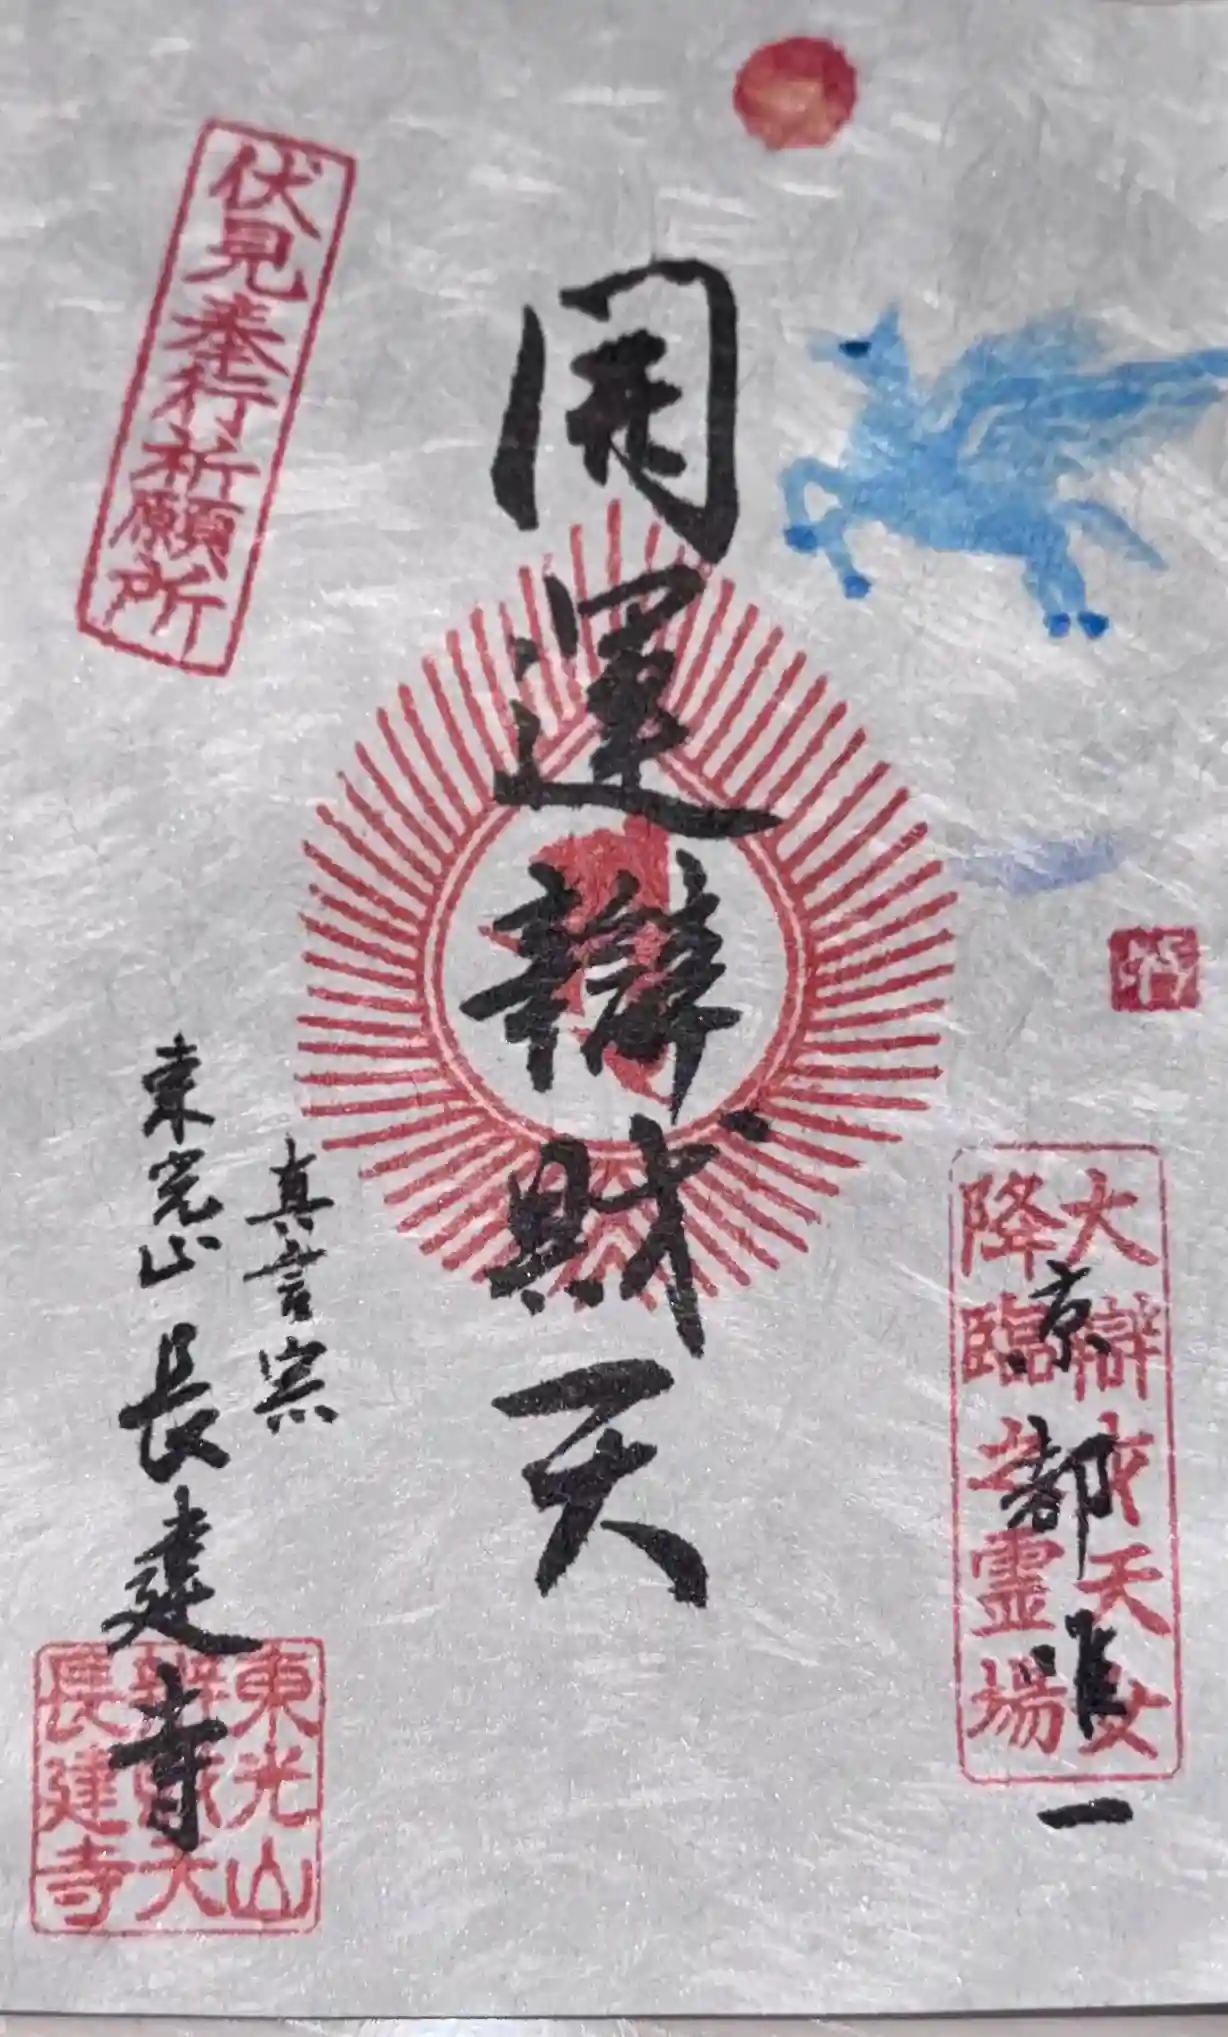 大辯才天女
降臨之霊場
京都唯一
開運辯財天
真言宗
東光山長建寺
伏見奉行祈願所
東光山
辨財天
長建寺